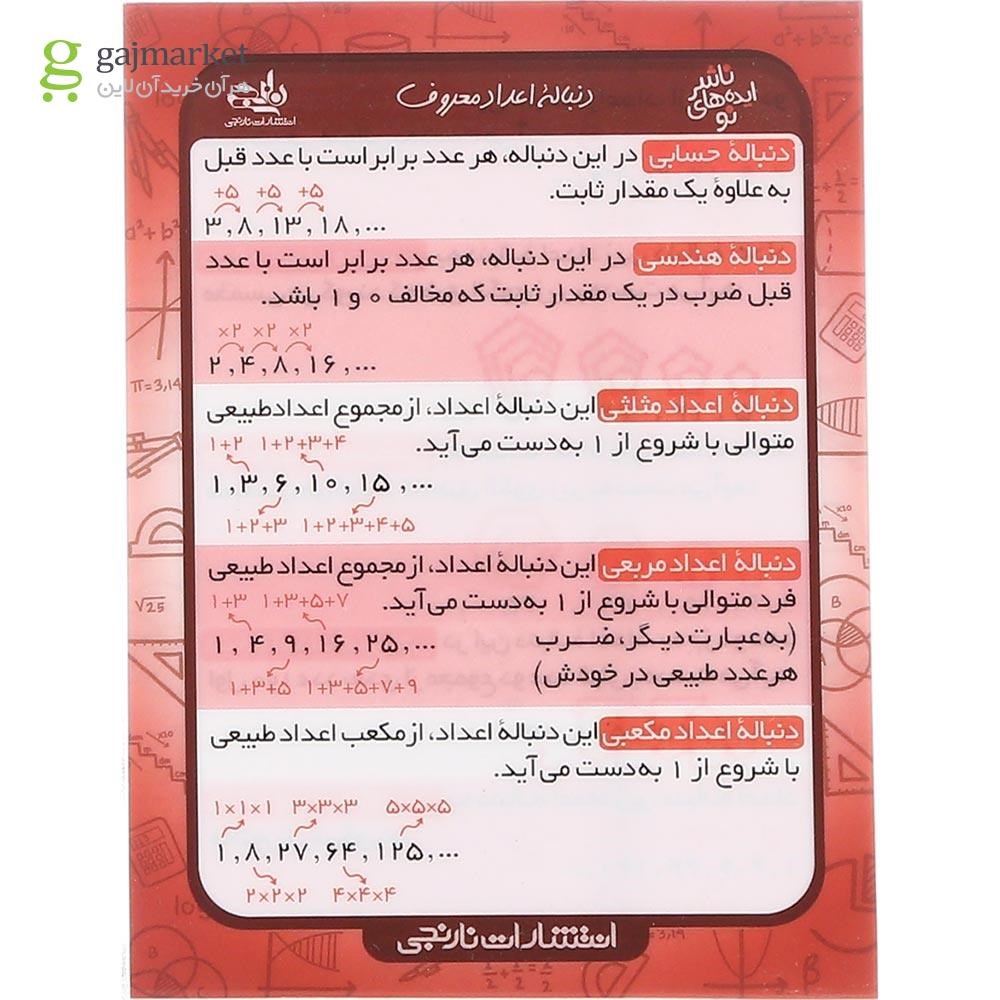 gajmarket
هر آن خرید آن لاین
ناشر
ایده‌های
نو
دنبالهٔ اعداد معروف
نارنجی
انتشارات نارنجی
دنبالهٔ حسابی در این دنباله، هر عدد برابر است با عدد قبل
به علاوهٔ یک مقدار ثابت.
+۵ +۵ +۵
۳,۸,۱۳,۱۸,...
دنبالهٔ هندسی در این دنباله، هر عدد برابر است با عدد
قبل ضرب در یک مقدار ثابت که مخالف ۰ و ۱ باشد.
×۲ ×۲ ×۲
۲,۴,۸,۱۶,...
دنبالهٔ اعداد مثلثی این دنبالهٔ اعداد، از مجموع اعداد طبیعی
متوالی با شروع از ۱ به‌دست می‌آید.
۱+۲ ۱+۲+۳+۴
۱,۳,۶,۱۰,۱۵,...
۱+۲+۳ ۱+۲+۳+۴+۵
دنبالهٔ اعداد مربعی این دنبالهٔ اعداد، از مجموع اعداد طبیعی
فرد متوالی با شروع از ۱ به‌دست می‌آید.
۱+۳ ۱+۳+۵+۷
(به عبارت دیگر، ضرب
هر عدد طبیعی در خودش)
۱,۴,۹,۱۶,۲۵,...
۱+۳+۵ ۱+۳+۵+۷+۹
دنبالهٔ اعداد مکعبی این دنبالهٔ اعداد، از مکعب اعداد طبیعی
با شروع از ۱ به‌دست می‌آید.
۱×۱×۱ ۳×۳×۳ ۵×۵×۵
۱,۸,۲۷,۶۴,۱۲۵,...
۲×۲×۲ ۴×۴×۴
انتشارات نارنجی
π=3,14
√25